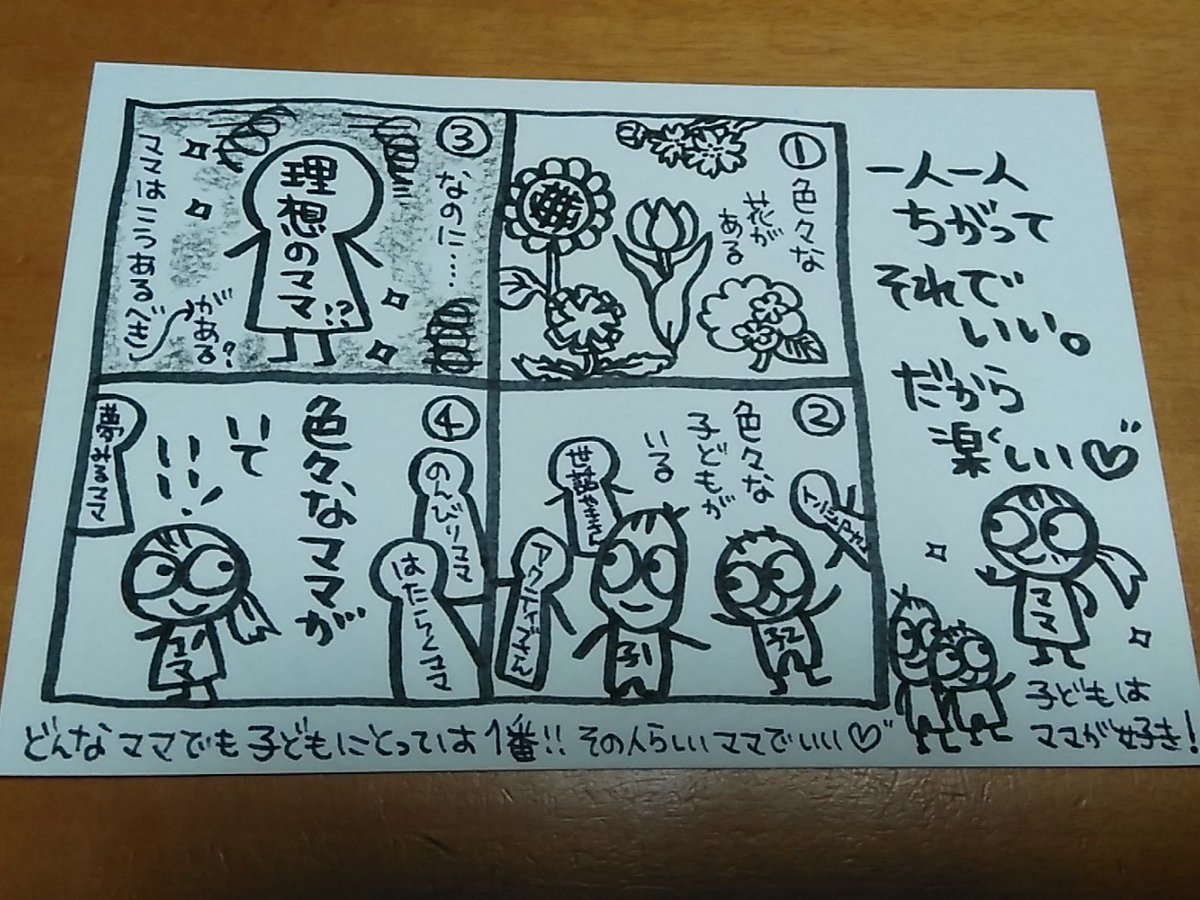 一人一人
ちがって
それで
いい。
だから
楽しい♡
①
色々な
花が
ある
②
色々な
子どもが
いる
世話やきさん
アクティブさん
子1
子2
③
なのに……
理想のママ!?
ママはこうあるべき
がある?
④
色々なママが
いて
いい!!
のんびりママ
はたらくママ
夢みるママ
ママ
ママ
子どもは
ママが好き!
どんなママでも子どもにとっては1番!!その人らしいママでいい♡